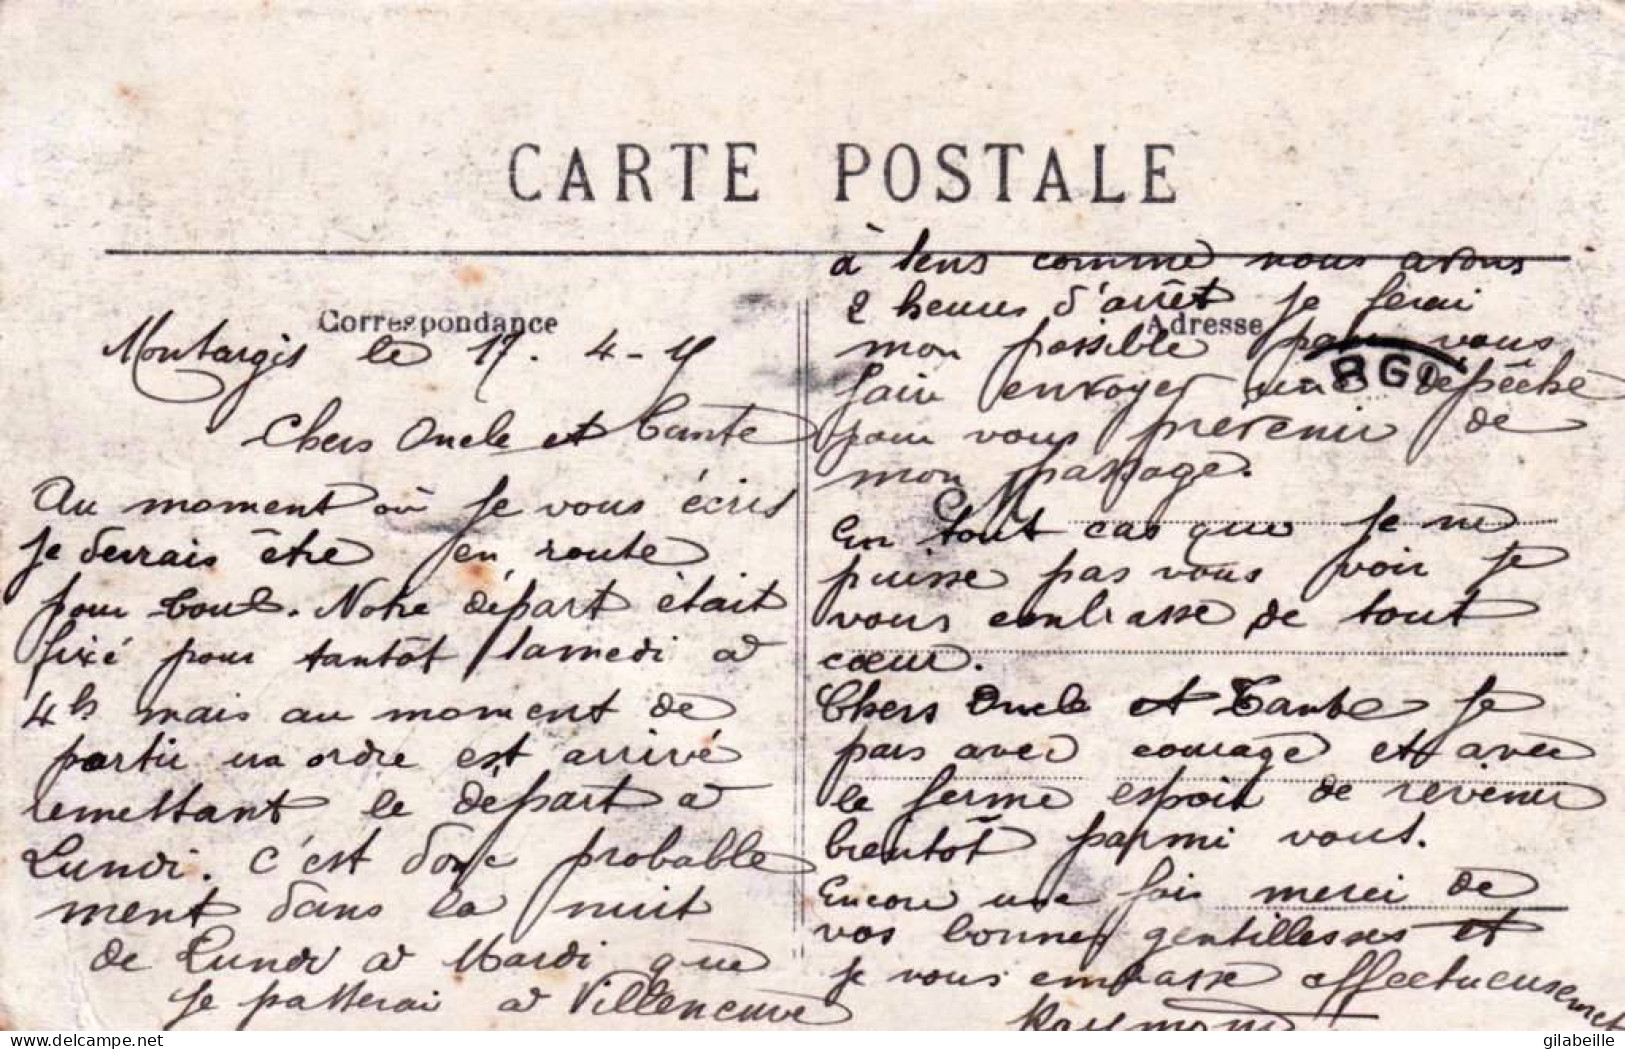 CARTE POSTALE
Correspondance
Montargis le 17. 4-15
Chers Oncle et Tante
Au moment où je vous écris
je devrais être en route
pour Toul. Notre départ était
fixé pour tantôt samedi à
4h mais au moment de
partir un ordre est arrivé
remettant le départ à
Lundi. C'est donc probable
ment dans la nuit
de Lundi à Mardi que
je passerai à Villeneuve
à Sens comme nous avons
2 heures d'arrêt je ferai
Adresse
mon possible pour vous
BGI
faire envoyer une dépêche
pour vous prévenir de
mon passage.
En tout cas que je ne
puisse pas vous voir je
vous embrasse de tout
cœur.
Chers Oncle et Tante je
pars avec courage et avec
le ferme espoir de revenir
bientôt parmi vous.
Encore une fois merci de
vos bonnes gentillesses et
je vous embrasse affectueusement
Raymond
delcampe.net
gilabeille